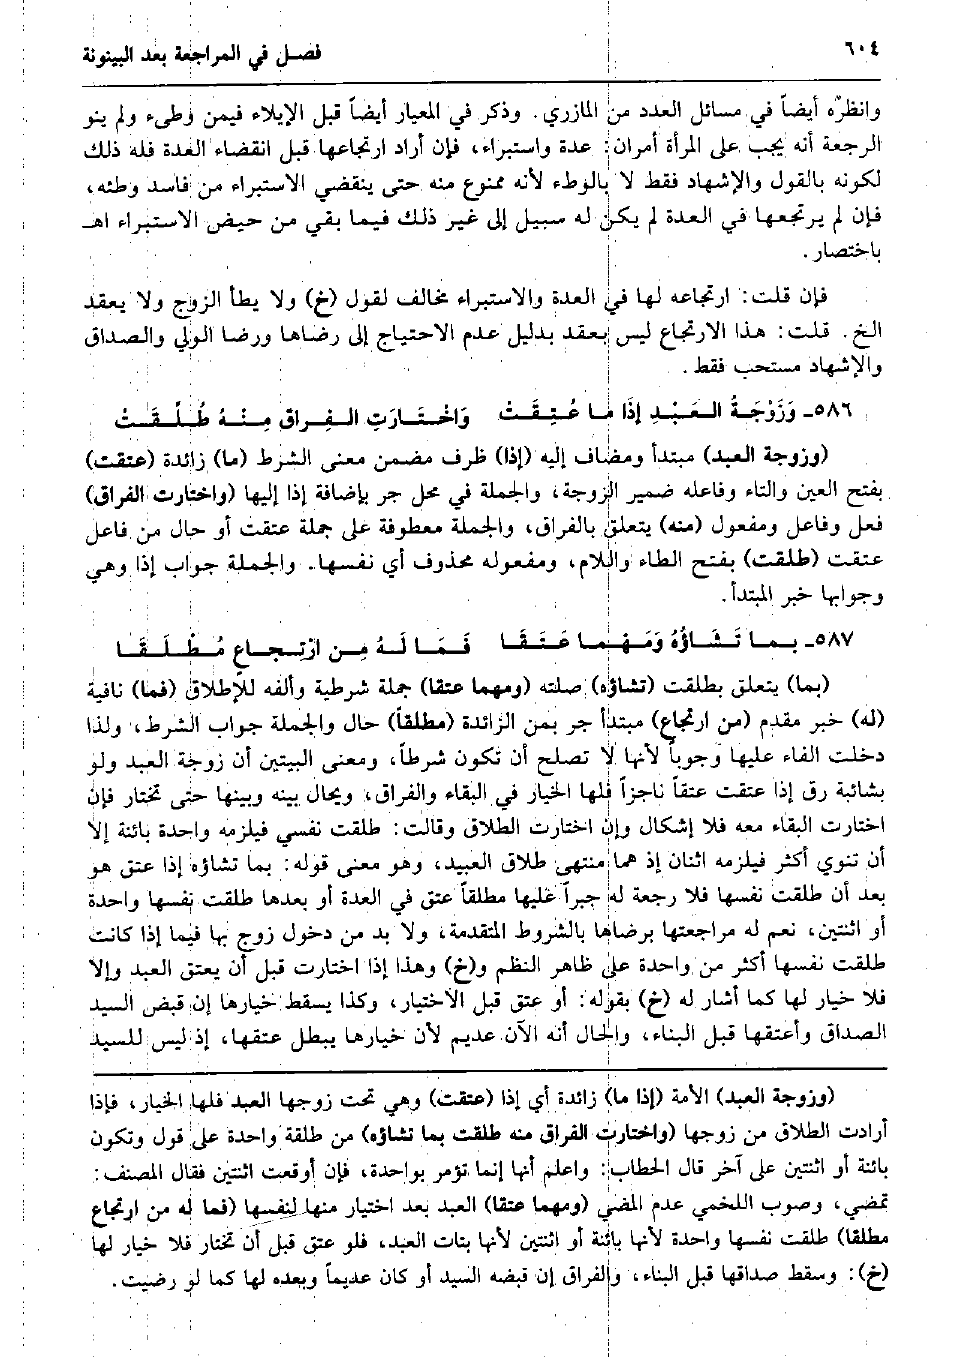 ٦٠٤ فصل في المراجعة بعد البينونة
وانظره أيضاً في مسائل العدد من المازري. وذكر في المعيار أيضاً قبل الإيلاء فيمن وطىء ولم ينو
الرجعة أنه يجب على المرأة أمران: عدة واستبراء، فإن أراد ارتجاعها قبل انقضاء العدة فله ذلك
لكونه بالقول والإشهاد فقط لا بالوطء لأنه ممنوع منه حتى ينقضي الاستبراء من فاسد وطئه،
فإن لم يرتجعها في العدة لم يكن له سبيل إلى غير ذلك فيما بقي من حيض الاستبراء اهـ
باختصار.
فإن قلت: ارتجاعه لها في العدة والاستبراء مخالف لقول (خ) ولا يطأ الزوج ولا يعقد
الخ. قلت: هذا الارتجاع ليس بعقد بدليل عدم الاحتياج إلى رضاها ورضا الولي والصداق
والإشهاد مستحب فقط.
٥٨٦ـ وَزَوْجَةُ العَبْدِ إذَا مَا عُتِقَتْ وَاخْتَارَتِ الفِراق مِنْهُ طُلِّقَتْ
(وزوجة العبد) مبتدأ ومضاف إليه (إذا) ظرف مضمن معنى الشرط (ما) زائدة (عتقت)
بفتح العين والتاء وفاعله ضمير الزوجة، والجملة في محل جر بإضافة إذا إليها (واختارت الفراق)
فعل وفاعل ومفعول (منه) يتعلق بالفراق، والجملة معطوفة على جملة عتقت أو حال من فاعل
عتقت (طلقت) بفتح الطاء واللام، ومفعوله محذوف أي نفسها. والجملة جواب إذا وهي
وجوابها خبر المبتدأ.
٥٨٧ـ بِما تَشَاؤُهُ وَمَهْما عَتَقَا فَمَا لَهُ مِن ارْتِجاعٍ مُطْلَقَا
(بما) يتعلق بطلقت (تشاؤه) صلته (ومهما عتقا) جملة شرطية وألفه للإطلاق (فما) نافية
(له) خبر مقدم (من ارتجاع) مبتدأ جر بمن الزائدة (مطلقاً) حال والجملة جواب الشرط، ولذا
دخلت الفاء عليها وجوباً لأنها لا تصلح أن تكون شرطاً، ومعنى البيتين أن زوجة العبد ولو
بشائبة رق إذا عتقت عتقاً ناجزاً فلها الخيار في البقاء والفراق، ويحال بينه وبينها حتى تختار فإن
اختارت البقاء معه فلا إشكال وإن اختارت الطلاق وقالت: طلقت نفسي فيلزمه واحدة بائنة إلا
أن تنوي أكثر فيلزمه اثنان إذ هما منتهى طلاق العبيد، وهو معنى قوله: بما تشاؤه إذا عتق هو
بعد أن طلقت نفسها فلا رجعة له جبراً عليها مطلقاً عتق في العدة أو بعدها طلقت نفسها واحدة
أو اثنتين، نعم له مراجعتها برضاها بالشروط المتقدمة، ولا بد من دخول زوج بها فيما إذا كانت
طلقت نفسها أكثر من واحدة على ظاهر النظم و(خ) وهذا إذا اختارت قبل أن يعتق العبد وإلا
فلا خيار لها كما أشار له (خ) بقوله: أو عتق قبل الاختيار، وكذا يسقط خيارها إن قبض السيد
الصداق وأعتقها قبل البناء، والحال أنه الآن عديم لأن خيارها يبطل عتقها، إذ ليس للسيد
(وزوجة العبد) الأمة (إذا ما) زائدة أي إذا (عتقت) وهي تحت زوجها العبد فلها الخيار، فإذا
أرادت الطلاق من زوجها (واختارت الفراق منه طلقت بما تشاؤه) من طلقة واحدة على قول وتكون
بائنة أو اثنتين على آخر قال الحطاب: واعلم أنها إنما تؤمر بواحدة، فإن أوقعت اثنتين فقال المصنف:
تمضي، وصوب اللخمي عدم المضي (ومهما عتقا) العبد بعد اختيار منها لنفسها (فما له من ارتجاع
مطلقا) طلقت نفسها واحدة لأنها بائنة أو اثنتين لأنها بتات العبد، فلو عتق قبل أن تختار فلا خيار لها
(خ): وسقط صداقها قبل البناء، والفراق إن قبضه السيد أو كان عديماً وبعده لها كما لو رضيت.